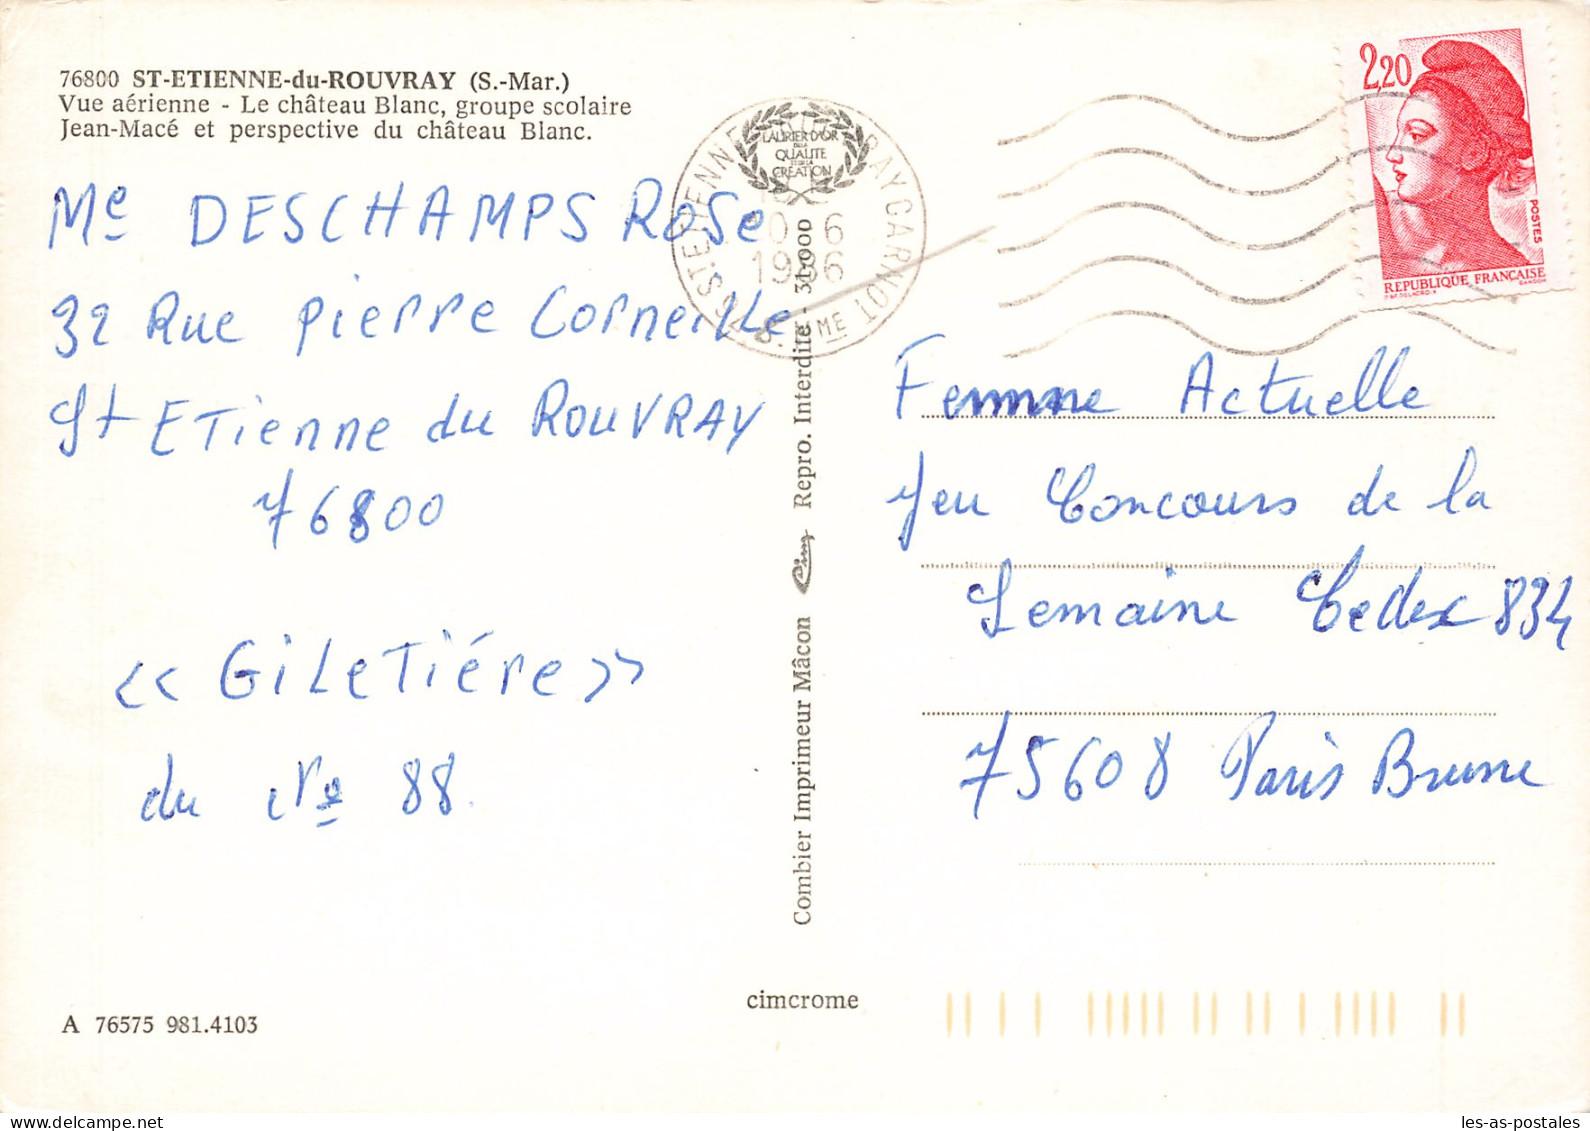 76800 ST-ETIENNE-du-ROUVRAY (S.-Mar.)
Vue aérienne - Le château Blanc, groupe scolaire
Jean-Macé et perspective du château Blanc.
Me DESCHAMPS Rose
32 Rue Pierre Corneille
St ETienne du ROUVRAY
76800
<< GiLeTiére >>
du No 88
A 76575 981.4103
LAURIER D'OR
DE LA
QUALITE
ET DE LA
CREATION
1986
CARNOT
Combier Imprimeur Mâcon Cim Repro. Interdite - 31.000
cimcrome
2,20
POSTES
REPUBLIQUE FRANÇAISE
GANDON
Femme Actuelle
Jeu Concours de la
Semaine Cedex 834
75608 Paris Brune
les-as-postales